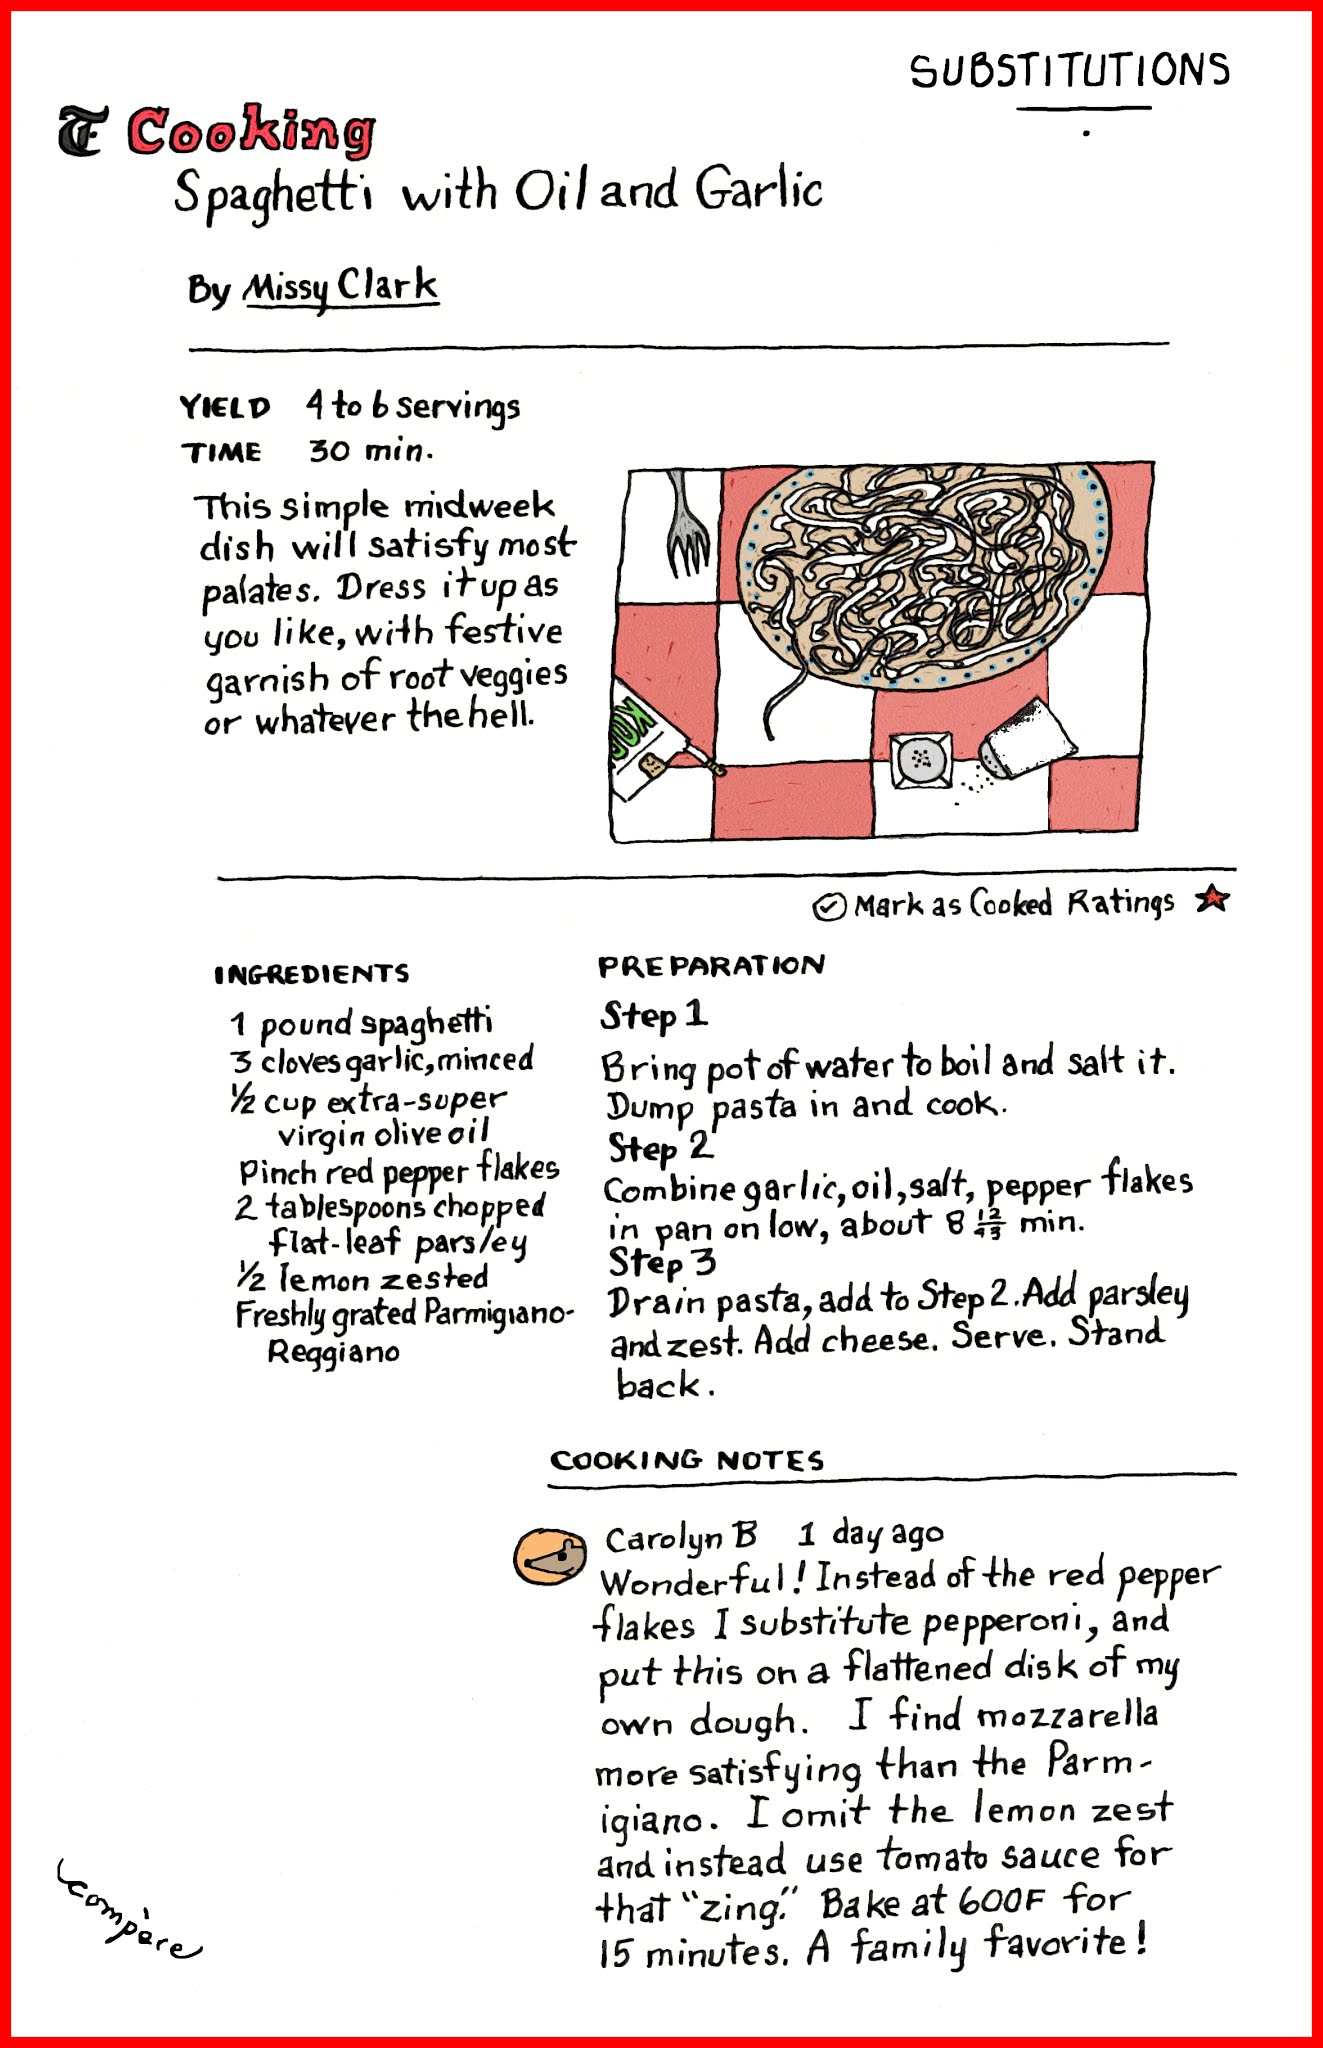 SUBSTITUTIONS
T Cooking
Spaghetti with Oil and Garlic
By Missy Clark
YIELD 4 to 6 servings
TIME 30 min.
This simple midweek
dish will satisfy most
palates. Dress it up as
you like, with festive
garnish of root veggies
or whatever the hell.
Mark as Cooked Ratings
INGREDIENTS
1 pound spaghetti
3 cloves garlic, minced
1/2 cup extra-super
virgin olive oil
Pinch red pepper flakes
2 tablespoons chopped
flat-leaf parsley
1/2 lemon zested
Freshly grated Parmigiano-
Reggiano
PREPARATION
Step 1
Bring pot of water to boil and salt it.
Dump pasta in and cook.
Step 2
Combine garlic, oil, salt, pepper flakes
in pan on low, about 8 12/43 min.
Step 3
Drain pasta, add to Step 2. Add parsley
and zest. Add cheese. Serve. Stand
back.
COOKING NOTES
Carolyn B 1 day ago
Wonderful! Instead of the red pepper
flakes I substitute pepperoni, and
put this on a flattened disk of my
own dough. I find mozzarella
more satisfying than the Parm-
igiano. I omit the lemon zest
and instead use tomato sauce for
that "zing." Bake at 600F for
15 minutes. A family favorite!
compère